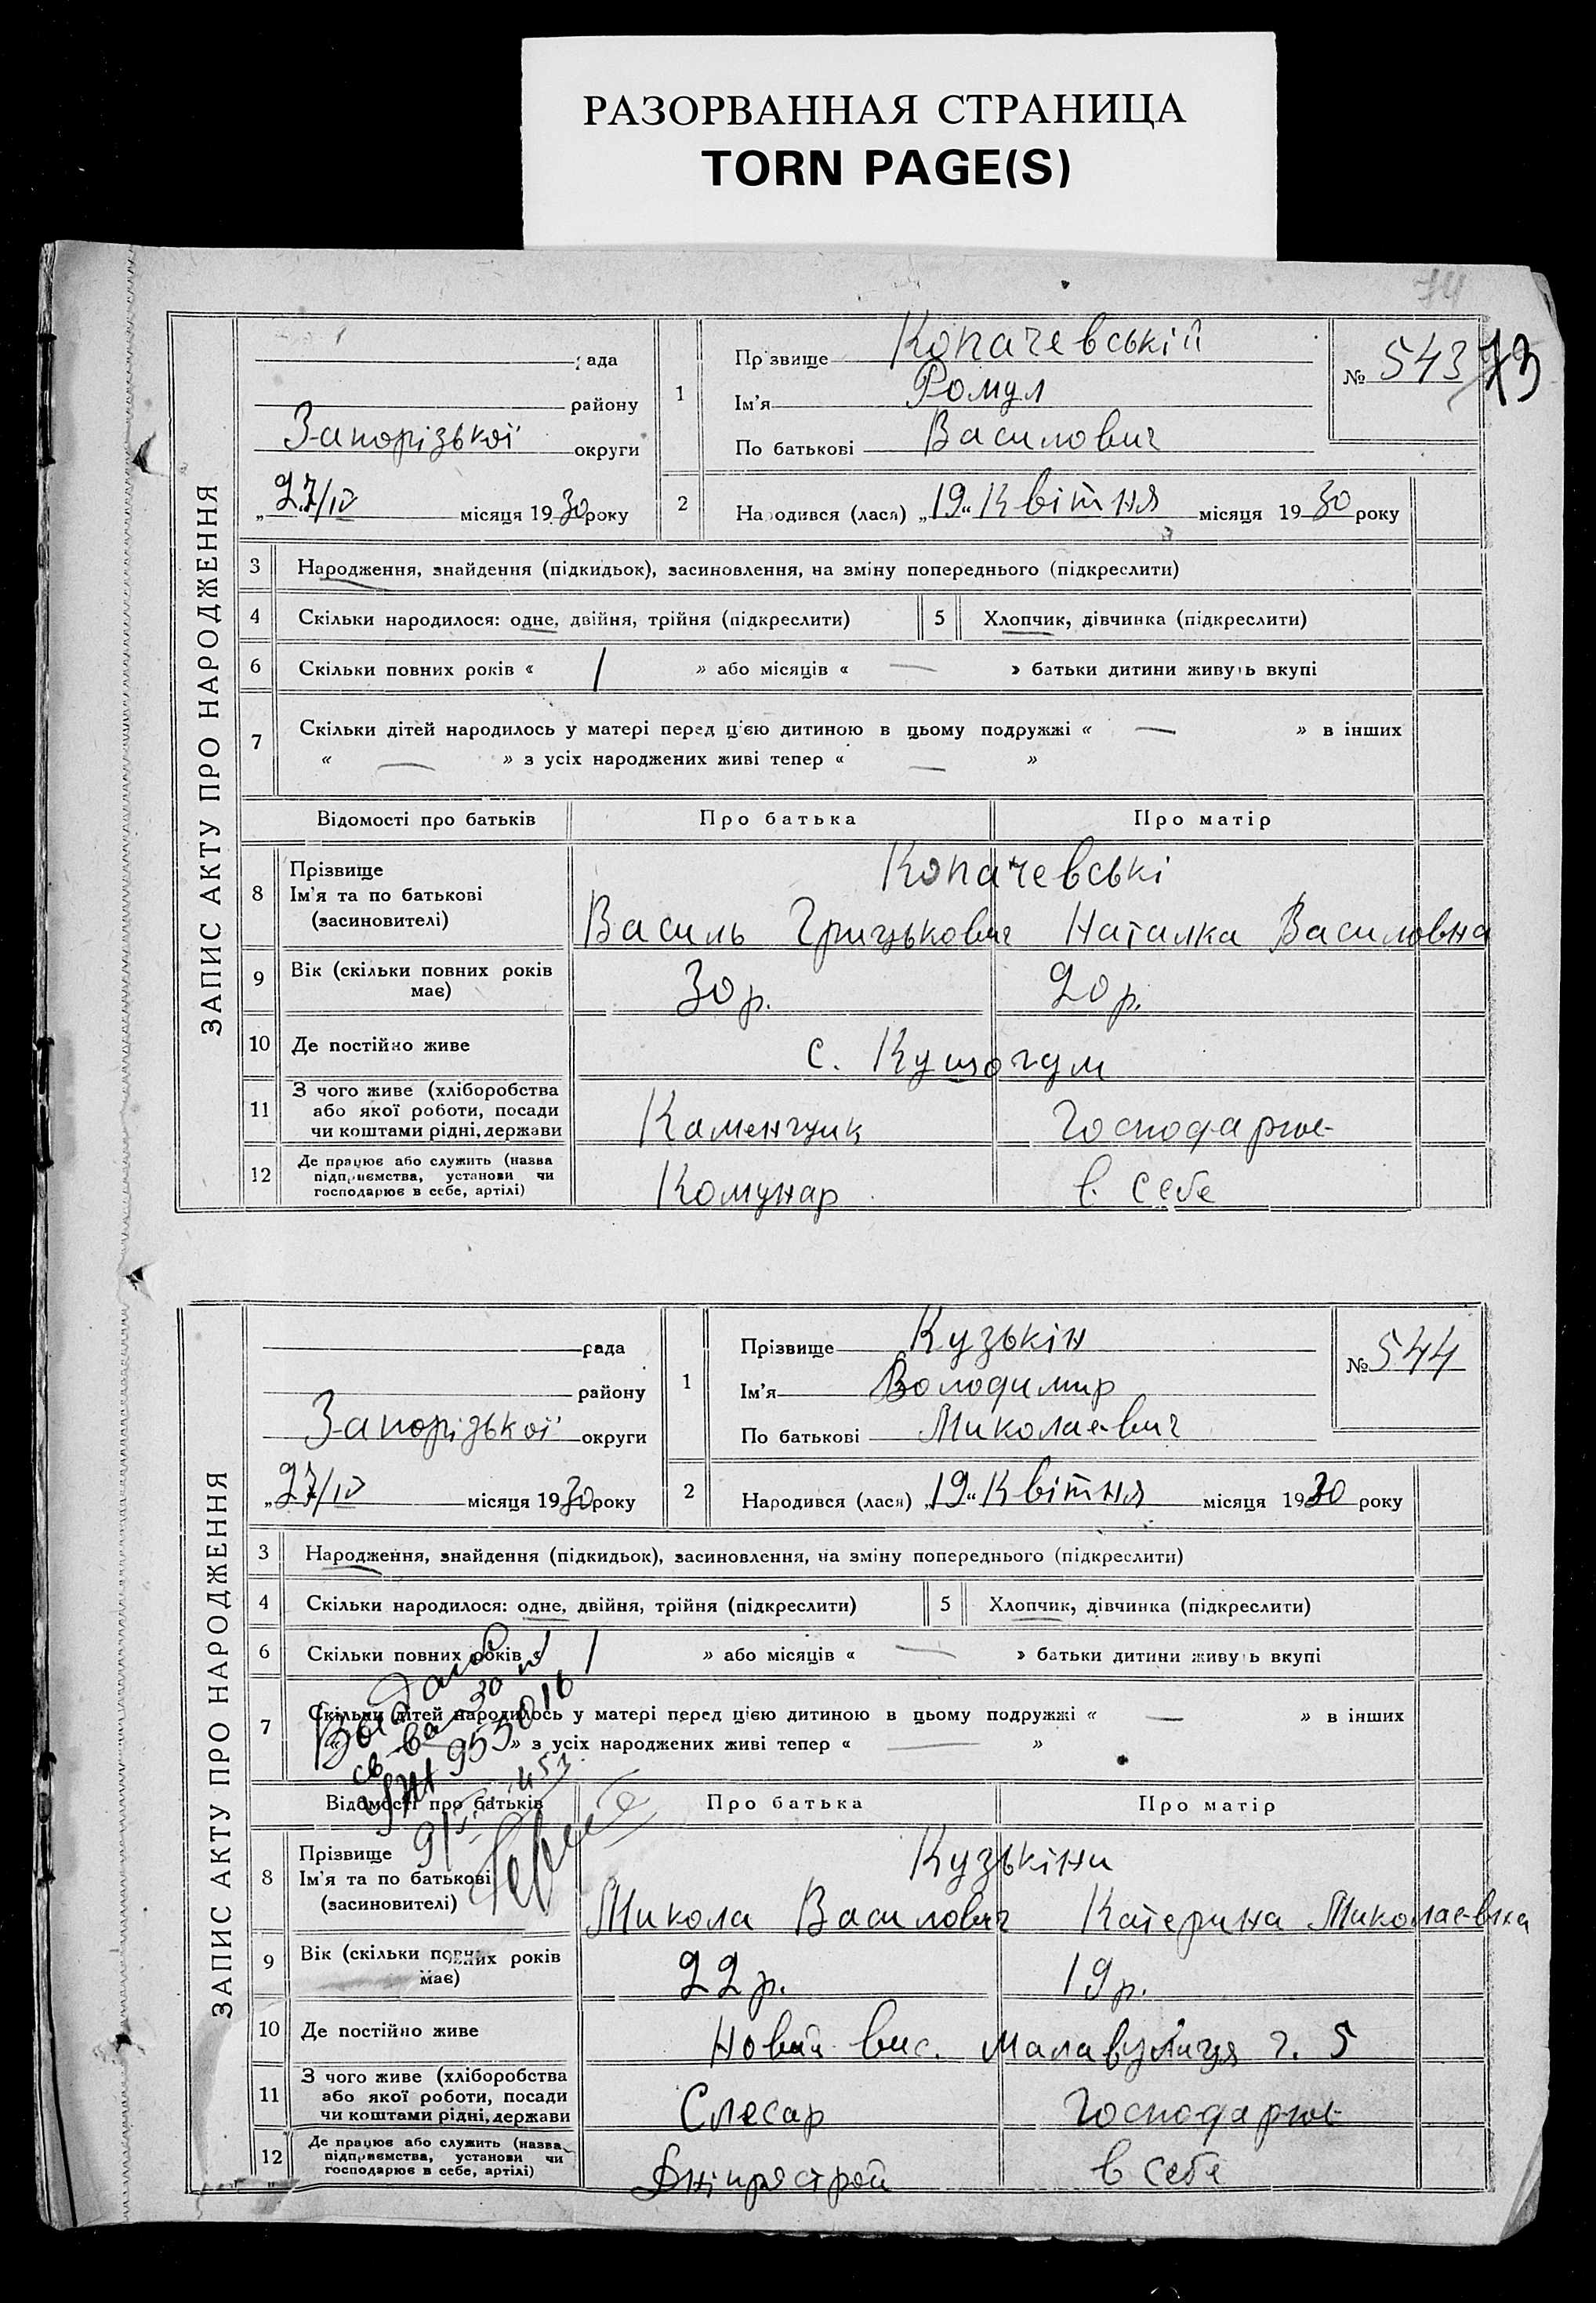 РАЗОРВАННАЯ СТРАНИЦА
TORN PAGE(S)
74
73
ЗАПИС АКТУ ПРО НАРОДЖЕННЯ
рада
району
Запорізької округи
„27/IV місяця 1930 року
1 Прізвище Копачевській
Ім'я Ромул
По батькові Василович
№ 543
2 Народився (лася) „19“ Квітня місяця 1930 року
3 Народження, знайдення (підкидьок), засиновлення, на зміну попереднього (підкреслити)
4 Скільки народилося: одне, двійня, трійня (підкреслити) 5 Хлопчик, дівчинка (підкреслити)
6 Скільки повних років « 1 » або місяців « — » батьки дитини живуть вкупі
7 Скільки дітей народилось у матері перед цією дитиною в цьому подружжі « — » в інших
« — » з усіх народжених живі тепер « — »
Відомості про батьків Про батька Про матір
8 Прізвище Копачевські
Ім'я та по батькові
(засиновителі) Василь Грицькович Наталка Василовна
9 Вік (скільки повних років
має) 30 р. 20 р.
10 Де постійно живе с. Кушогум
11 З чого живе (хліборобства
або якої роботи, посади
чи коштами рідні, держави Каменщик Господарює
12 Де працює або служить (назва
підприємства, установи чи
господарює в себе, артілі) Комунар в себе
ЗАПИС АКТУ ПРО НАРОДЖЕННЯ
рада
району
Запорізької округи
„27/IV місяця 1930 року
1 Прізвище Кузькін
Ім'я Володимир
По батькові Миколаевич
№ 544
2 Народився (лася) „19“ Квітня місяця 1930 року
3 Народження, знайдення (підкидьок), засиновлення, на зміну попереднього (підкреслити)
4 Скільки народилося: одне, двійня, трійня (підкреслити) 5 Хлопчик, дівчинка (підкреслити)
6 Скільки повних років « 1 » або місяців « — » батьки дитини живуть вкупі
7 Скільки дітей народилось у матері перед цією дитиною в цьому подружжі « — » в інших
» з усіх народжених живі тепер « — »
Відомості про батьків Про батька Про матір
8 Прізвище Кузькіни
Ім'я та по батькові
(засиновителі) Микола Василович Катерина Миколаевна
9 Вік (скільки повних років
має) 22 р. 19 р.
10 Де постійно живе Новий вис. Мала вулиця ч. 5
11 З чого живе (хліборобства
або якої роботи, посади
чи коштами рідні, держави Слесар Господарює
12 Де працює або служить (назва
підприємства, установи чи
господарює в себе, артілі) Дніпрострой в себе